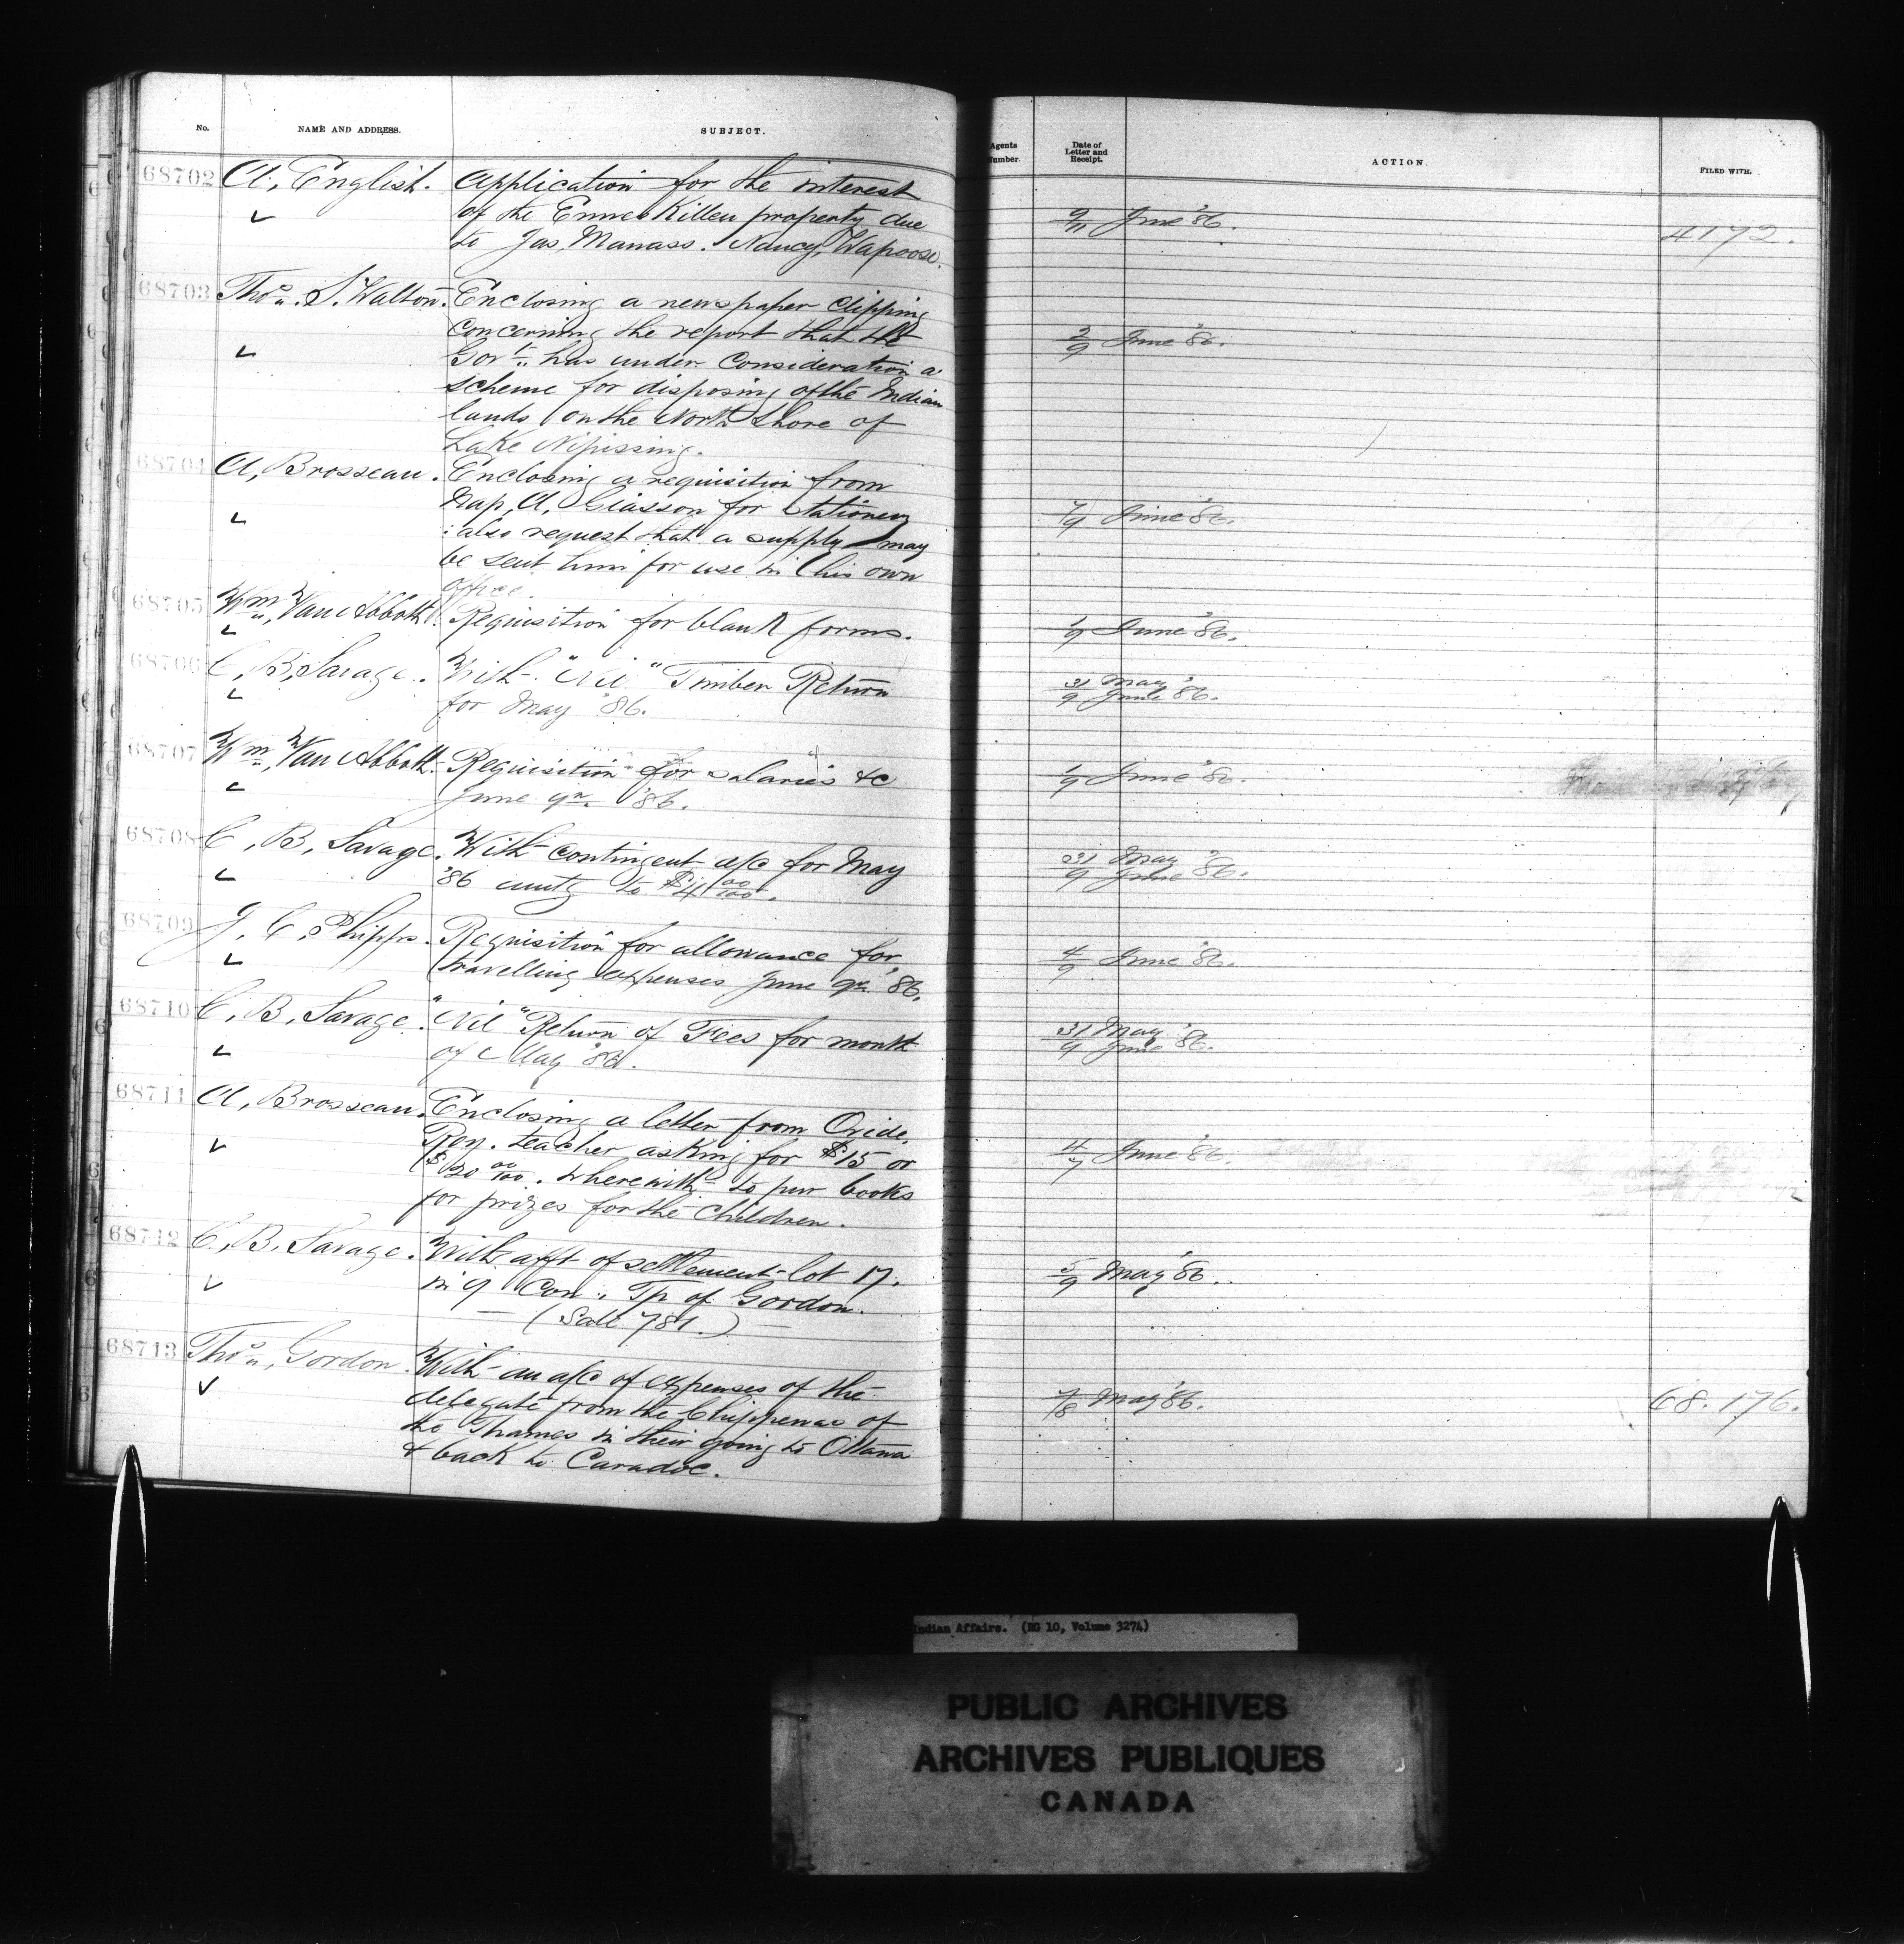 No. NAME AND ADDRESS. SUBJECT. Agents Number. Date of Letter and Receipt. ACTION. FILED WITH.
68702 A. English. Application for the interest
of the Enniskillen property due 9/11 June '86. 4172.
to Jas. Manass. Nancy, Wapoose.
68703 Thos. S. Walton. Enclosing a newspaper clipping
concerning the report that the 2/9 June '86.
Govt. has under Consideration a
scheme for disposing of the Indian
lands on the North Shore of
Lake Nipissing.
68704 A, Brosseau. Enclosing a requisition from
Nap, A, Giasson for Stationery 7/9 June '86.
: also request that a supply may
be sent him for use in his own
office.
68705 Wm, Van Abbott. Requisition for blank forms. 1/9 June '86.
68706 C, B, Savage. With "Nil" Timber Return 31 May
for May '86. 9 June '86.
68707 Wm, Van Abbott. Requisition for salaries &c 1/9 June '86.
June qr. '86.
68708 C, B, Savage. With contingent a/c for May 31 May
'86 amtg to $4 00/100. 9 June '86.
68709 J, C, Phipps. Requisition for allowance for 4/9 June '86.
travelling expenses June qr. '86.
68710 C, B, Savage. "Nil" Return of Fees for month 31 May
of May '86. 9 June '86.
68711 A, Brosseau. Enclosing a letter from Ovide,
Roy. teacher asking for $15 or 4/7 June '86.
$20 00/100. wherewith to pur books
for prizes for the Children.
68712 C, B, Savage. With afft of settlement lot 17.
in 9 Con., Tp of Gordon. 5/9 May '86.
(Sale 781.)
68713 Thos, Gordon. With an a/c of expenses of the
delegate from the Chippewas of 7/8 May '86. 68.176.
the Thames in their going to Ottawa
& back to Caradoc.
Indian Affairs. (RG 10, Volume 3274)
PUBLIC ARCHIVES
ARCHIVES PUBLIQUES
CANADA